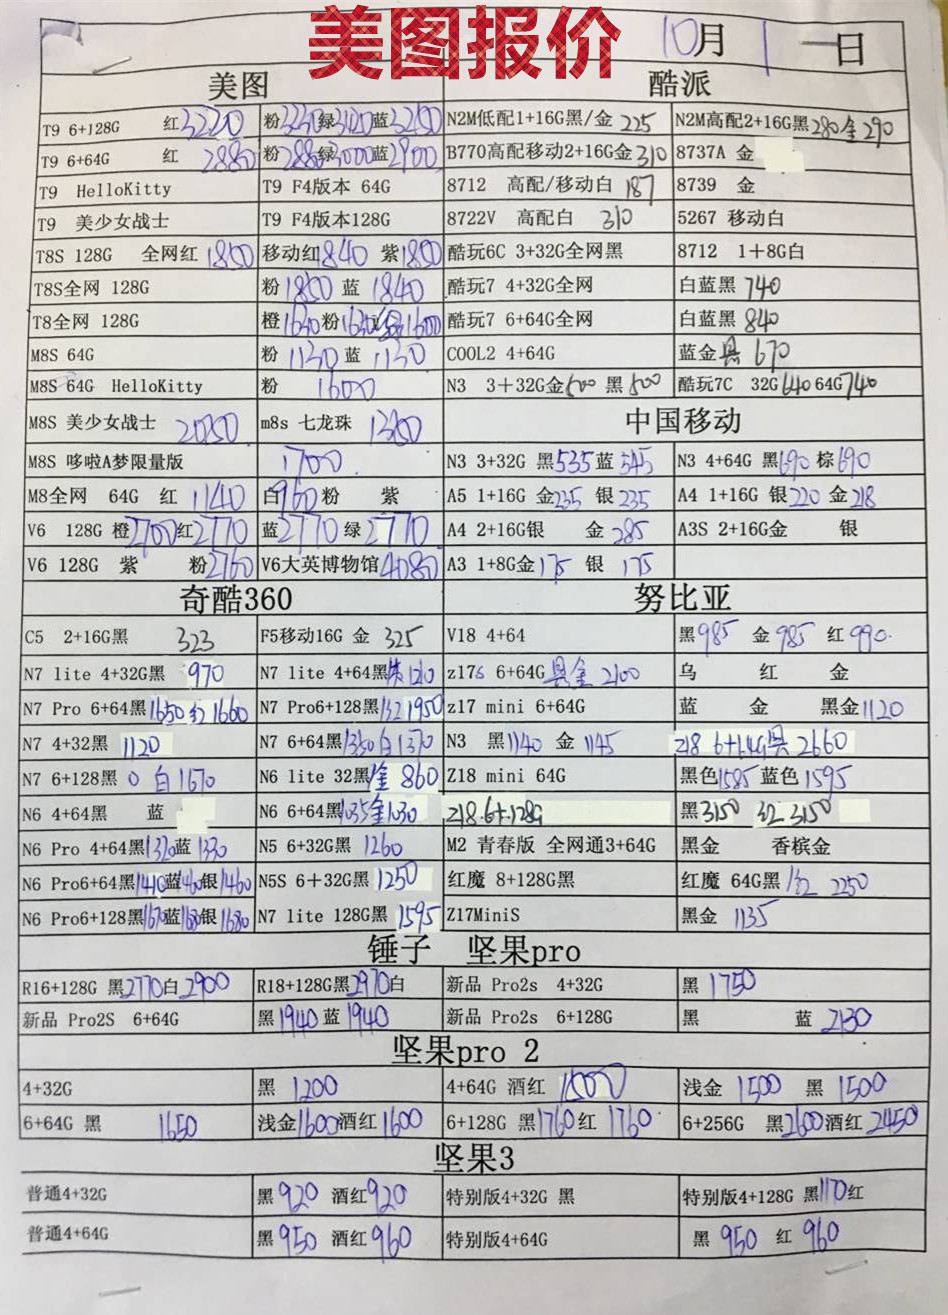 美图报价
10月 1 日
美图 酷派
T9 6+128G 红3220 粉3230绿3120蓝3200 N2M低配1+16G黑/金 225 N2M高配2+16G黑280金290
T9 6+64G 红 2880 粉2880绿3000蓝2900 B770高配移动2+16G金310 8737A 金
T9 HelloKitty T9 F4版本 64G 8712 高配/移动白 187 8739 金
T9 美少女战士 T9 F4版本128G 8722V 高配白 310 5267 移动白
T8S 128G 全网红1800 移动红1840 紫1800 酷玩6C 3+32G全网黑 8712 1+8G白
T8S全网 128G 粉1800 蓝 1840 酷玩7 4+32G全网 白蓝黑 740
T8全网 128G 橙1630粉1630 1600 酷玩7 6+64G全网 白蓝黑 840
M8S 64G 粉 1130 蓝 1130 COOL2 4+64G 蓝金黑 670
M8S 64G HelloKitty 粉 1600 N3 3+32G金500 黑 500 酷玩7C 32G640 64G740
M8S 美少女战士 m8s 七龙珠 中国移动
M8S 哆啦A梦限量版 1700 N3 3+32G 黑535蓝545 N3 4+64G 黑690 棕690
M8全网 64G 红 1140 白960粉 紫 A5 1+16G 金235 银235 A4 1+16G 银220 金218
V6 128G 橙2700红2770 蓝2770 绿2770 A4 2+16G银 金 285 A3S 2+16G金 银
V6 128G 紫 粉2760 V6大英博物馆4080 A3 1+8G金175 银 175
奇酷360 努比亚
C5 2+16G黑 323 F5移动16G 金 325 V18 4+64 黑985 金985 红990
N7 lite 4+32G黑 970 N7 lite 4+64黑 1210 z17s 6+64G黑金 2100 乌 红 金
N7 Pro 6+64黑1650红1660 N7 Pro6+128黑 红1950 z17 mini 6+64G 蓝 金 黑金1120
N7 4+32黑 1120 N7 6+64黑1350白1370 N3 黑1140 金1145 Z18 6+64G黑 2660
N7 6+128黑 0 白1670 N6 lite 32黑金 860 Z18 mini 64G 黑色1585蓝色1595
N6 4+64黑 蓝 N6 6+64黑1035金1030 Z18.6+128G 黑3150 红 3150
N6 Pro 4+64黑1320蓝1330 N5 6+32G黑 1260 M2 青春版 全网通3+64G 黑金 香槟金
N6 Pro6+64黑1410蓝1460银1460 N5S 6+32G黑 1250 红魔 8+128G黑 红魔 64G黑 红 2250
N6 Pro6+128黑1670蓝1680银1680 N7 lite 128G黑 1595 Z17MiniS 黑金 1135
锤子 坚果pro
R16+128G 黑2770白2900 R18+128G黑2970白 新品 Pro2s 4+32G 黑 1750
新品 Pro2S 6+64G 黑1940 蓝1940 新品 Pro2s 6+128G 黑 蓝 2130
坚果pro 2
4+32G 黑 1200 4+64G 酒红 1500 浅金 1500 黑 1500
6+64G 黑 1650 浅金1600酒红1600 6+128G 黑1760红 1760 6+256G 黑2600酒红2450
坚果3
普通4+32G 黑920 酒红920 特别版4+32G 黑 特别版4+128G 黑1170红
普通4+64G 黑950 酒红960 特别版4+64G 黑 950 红 960